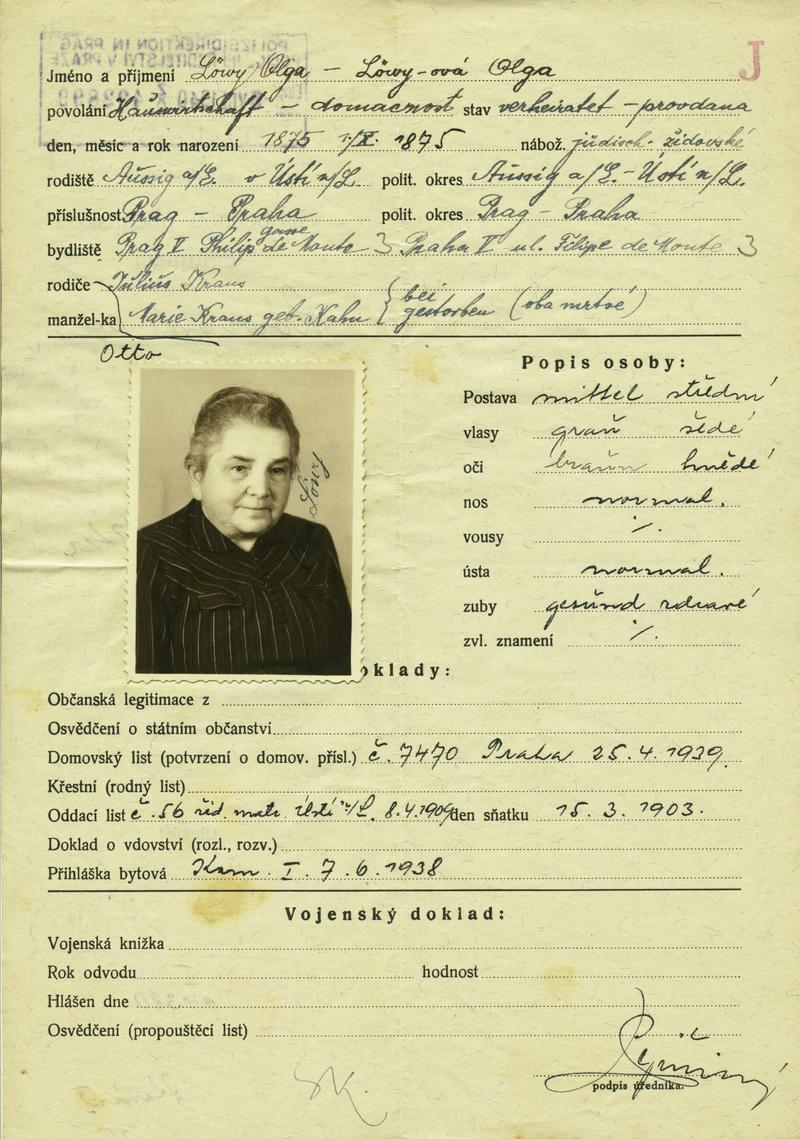 J
Jméno a příjmení Löwy Olga – Löwy-ová Olga
povolání Hauswirtschaft – domacnost stav verheiratet – provdana
den, měsíc a rok narození 1875 1/X. 1875 nábož. jüdisch - židovské
rodiště Aussig a/E. v Ústí n/L. polit. okres Aussig a/E. - Ústí n/L.
příslušnost Prag – Praha polit. okres Prag – Praha
bydliště Prag V Philip de Monte gasse 3 Praha V ul. Filipe de Monte 3
rodiče Julius Kraus
manžel-ka Marie Kraus geb. Kahn bei gestorben (oba mrtvé)
Otto
Popis osoby:
Postava mittel střední
vlasy grau šedé
oči braun hnědé
nos normal.
vousy ./.
ústa normal.
zuby gesund zdravé
zvl. znamení ./.
Löwy
oklady:
Občanská legitimace z
Osvědčení o státním občanství
Domovský list (potvrzení o domov. přísl.) č. 7470 Praha 25.4.1939.
Křestní (rodný list)
Oddací list č. 56 žid. matr. Ústí n/L. 8.4.1909 den sňatku 15.3.1903.
Doklad o vdovství (rozl., rozv.)
Přihláška bytová Kom. I. 7.6.1938
Vojenský doklad:
Vojenská knížka
Rok odvodu hodnost
Hlášen dne
Osvědčení (propouštěcí list)
podpis úředníka.